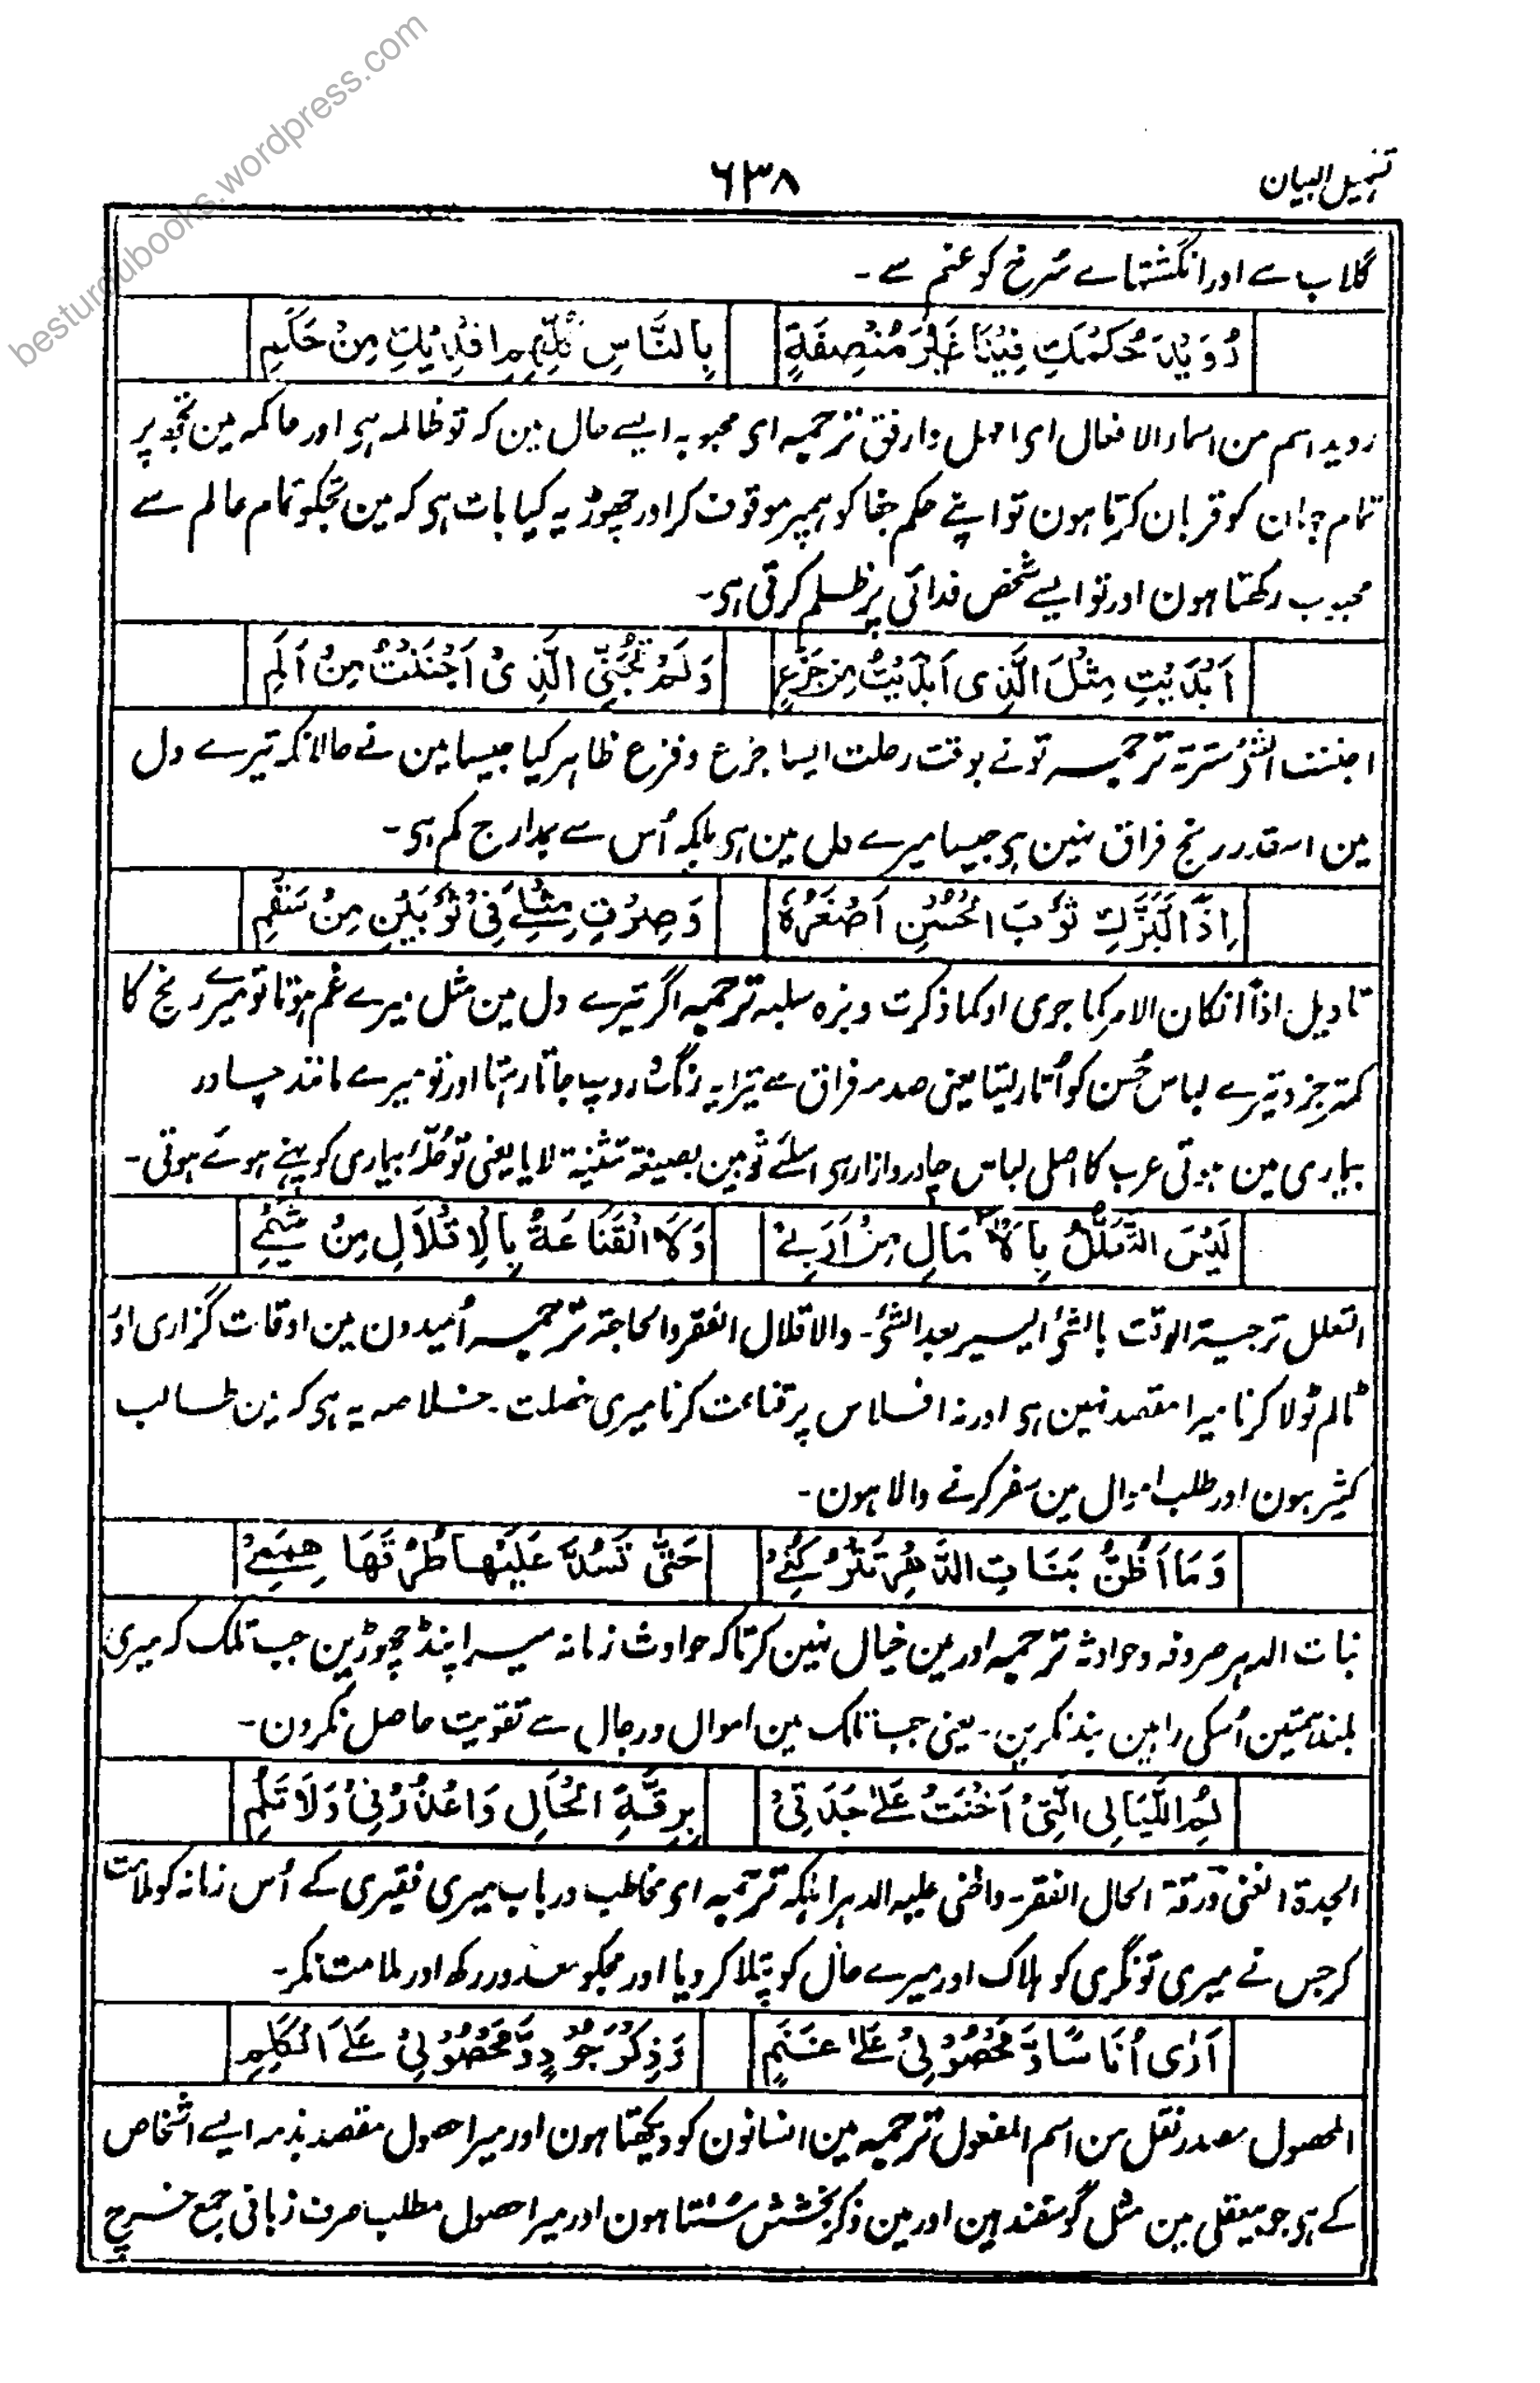 besturdubooks.wordpress.com
تسہیل البیان
۶۳۸
گلاب سے اور انگشتہاے سُرخ کو عنم سے ۔
رُوَيْدَ حُكْمَكِ فِيْنَا غَيْرَ مُنْصِفَةٍ
بِالنَّاسِ كُلِّهِمِ افْدِيْكِ مِنْ حَكَمِ
روید اسم من اسماء الافعال ای امہل وارفق ترجمیہ ای محبوبہ ایسے حال مین کہ تو ظالمہ ہی اور حاکمہ مین تجھ پر
تمام جہان کو قربان کرتا ہون تو اپنے حکم جفا کو ہمپر موقوف کر اور چھوڑ یہ کیا بات ہی کہ مین تجکو تمام عالم سے
محبوب رکھتا ہون اور تو ایسے شخص فدائی پر ظلم کرتی ہی۔
اَبْدَيْتِ مِثْلَ الَّذِی اَبْدَيْتُ مِنْ جَزَعٍ
وَلَمْ تُجِنِّی الَّذِیْ اَجْنَنْتُ مِنْ اَلَمِ
اجننت الشیٔ سترتہ ترجمیہ تو نے بوقت رحلت ایسا جزع وفزع ظاہر کیا جیسا مین نے حالانکہ تیرے دل
مین اسقدر رنج فراق نہین ہی جیسا میرے دل مین ہی بلکہ اُس سے بدارج کم ہی۔
اِذًا لَبَزَّكِ ثَوْبَ الْحُسْنِ اَصْغَرُهٗ
وَصِرْتِ مِثْلِیْ فِیْ ثَوْبَيْنِ مِنْ سَقَمِ
تاویل اذاً ان کان الامر کما جری او کما ذکرت وبزہ سلبہ ترجمیہ اگر تیرے دل مین مثل میرے غم ہوتا تو میرے رنج کا
کمتر جزو تیرے لباس حُسن کو اُتار لیتا یعنی صدمہ فراق سے تیرا یہ رنگ روپ جاتا رہتا اور تو میرے مانند چادر
بیماری مین ہوتی عرب کا اصلی لباس چادر وازار ہی اسلئے ثوبین بصیغۂ تثنیۃ لایا یعنی تو حُلّۂ بیماری کو پہنے ہوئے ہوتی۔
لَيْسَ التَّعَلُّلُ بِالْاٰمَالِ مِنْ اَرَبِیْ
وَلَا الْقَنَاعَةُ بِالْاِقْلَالِ مِنْ شِيَمِیْ
التعلل ترجیۃ الوقت بالشیٔ الیسیر بعد الشیٔ۔ والاقلال الفقر والحاجۃ ترجمیہ اُمیدون مین اوقات گزاری اور
ٹالم ٹولا کرنا میرا مقصد نہین ہی اور نہ افلاس پر قناعت کرنا میری خصلت ۔ خلاصہ یہ ہی کہ مین طالب
کثیر ہون اور طلب اموال مین سفر کرنے والا ہون۔
وَمَا اَظُنُّ بَنَاتِ الدَّهْرِ تَتْرُكُنِیْ
حَتّٰی تَسُدَّ عَلَيْهَا طُرْقَهَا هِمَمِیْ
بنات الدہر صروفہ وحوادثہ ترجمیہ اور مین خیال نہین کرتا کہ حوادث زمانہ میرا پنڈ چھوڑین جب تلک کہ میری
بلند ہمتین اُسکی راہین بند نکرین ۔ یعنی جب تلک مین اموال ورجال سے تقویت حاصل نکرون۔
لُمِ اللَّيَالِی الَّتِیْ اَخْنَتْ عَلٰی جِدَتِیْ
بِرِقَّةِ الْحَالِ وَاعْذُرْنِیْ وَلَا تَلُمِ
الجدۃ الغنی ورقۃ الحال الفقر۔ واخنی علیہ الدہر اہلکہ ترجمیہ ای مخاطب درباب میری فقیری کے اُس زمانہ کو ملامت
کر جس نے میری تونگری کو ہلاک اور میرے حال کو پتلا کر دیا اور مجکو معذور رکھ اور ملامت نکر۔
اَرٰی اُنَاسًا وَّمَحْصُوْلِیْ عَلٰی غَنَمٍ
وَذِكْرَ جُوْدٍ وَّمَحْصُوْلِیْ عَلَی الْكَلِمِ
المحصول مصدر نقل من اسم المفعول ترجمیہ مین انسانون کو دیکھتا ہون اور میرا حصول مقصد بذمہ ایسے اشخاص
کے ہی جو بیعقلی مین مثل گوسفند ہین اور مین ذکر بخشش سُنتا ہون اور میرا حصول مطلب صرف زبانی جمع خرچ